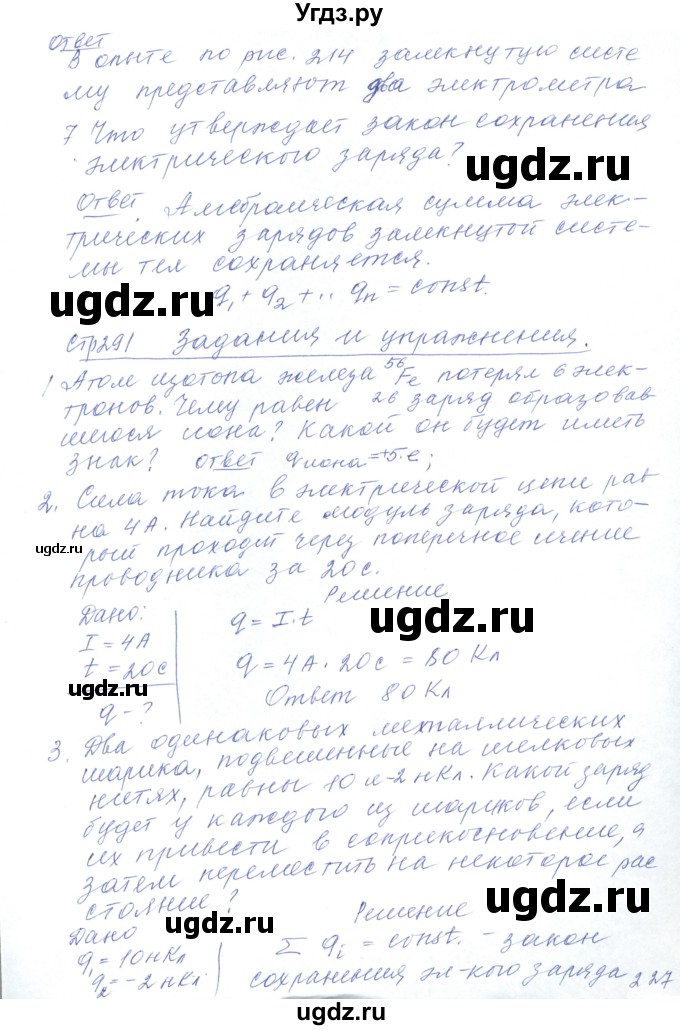 Угдз.ру
Ответ
В опыте по рис. 214 замкнутую систе
му представляют два электрометра
7 Что утверждает закон сохранения
электрического заряда?
ugdz.ru
Ответ. Алгебраическая сумма элек-
трических зарядов замкнутой систе-
мы тел сохраняется.
ugdz.ru
q₁ + q₂ + ·· qₙ = const.
стр291 Задания и упражнения.
1 Атом изотопа железа ⁵⁶₂₆Fe потерял 6 элек-
тронов. Чему равен заряд образовав
шегося иона? Какой он будет иметь
знак? ответ q иона = +5·e;
2. Сила тока в электрической цепи рав
на 4А. Найдите модуль заряда, кото-
ugdz.ru
рый проходит через поперечное сечение
проводника за 20с.
Дано: Решение
I = 4А q = I·t
ugdz.ru
t = 20с q = 4А · 20с = 80 Кл
ugdz.ru
q - ? Ответ 80 Кл
3. Два одинаковых металлических
шарика, подвешенные на шелковых
нитях, равны 10 и -2 нКл. Какой заряд
будет у каждого из шариков, если
их привести в соприкосновение, а
затем переместить на некоторое рас
стояние?
ugdz.ru
Дано Решение
q₁ = 10нКл Σ qᵢ = const. - закон
ugdz.ru
q₂ = -2 нКл. сохранения эл-кого заряда 227
ugdz.ru